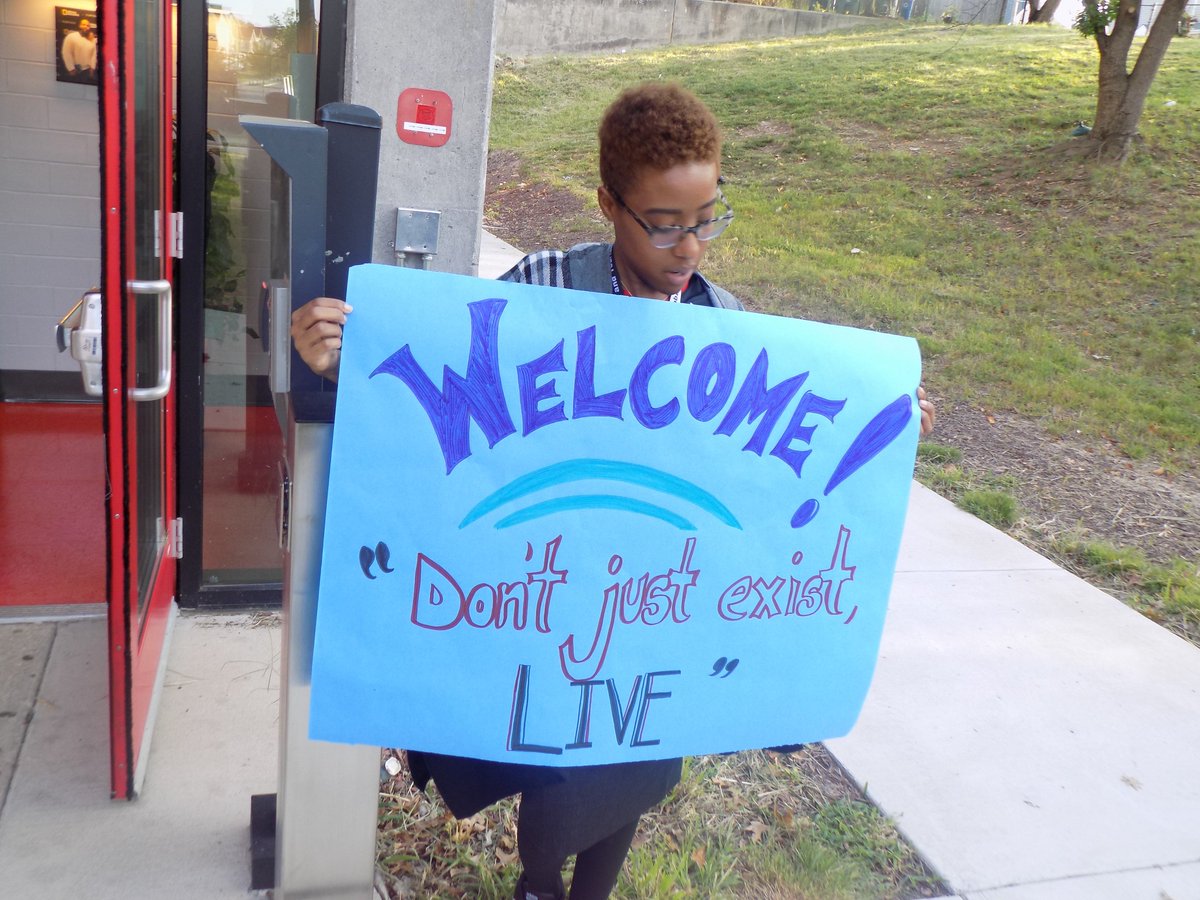 WELCOME!
"Don't just exist,
LIVE"